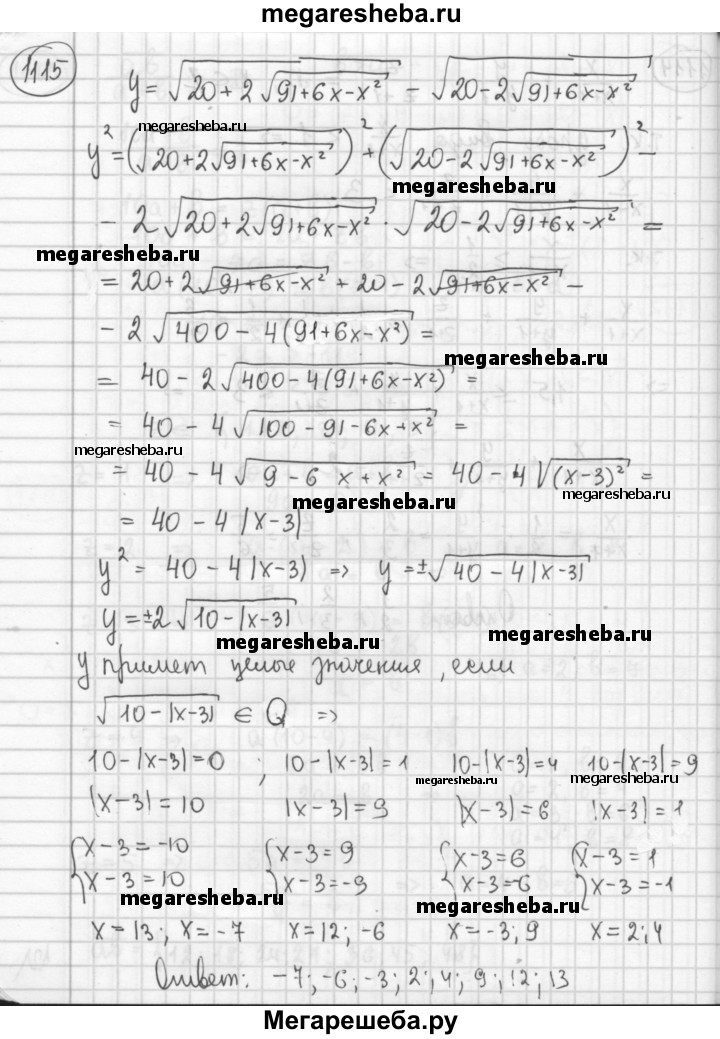 megaresheba.ru
1115
y = √(20 + 2√(91+6x-x²)) - √(20-2√(91+6x-x²))
megaresheba.ru
y² = (√(20+2√(91+6x-x²)))² + (√(20-2√(91+6x-x²)))² -
megaresheba.ru
- 2√(20+2√(91+6x-x²)) · √(20-2√(91+6x-x²)) =
megaresheba.ru
= 20+2√(91+6x-x²) + 20 - 2√(91+6x-x²) -
- 2√(400 - 4(91+6x-x²)) =
megaresheba.ru
= 40 - 2√(400-4(91+6x-x²)) =
= 40 - 4√(100-91-6x+x²) =
megaresheba.ru
= 40 - 4√(9-6x+x²) = 40 - 4√((x-3)²) =
megaresheba.ru
megaresheba.ru
= 40 - 4|x-3|
y² = 40 - 4|x-3) => y = ±√(40-4|x-3|)
y = ±2√(10-|x-3|)
megaresheba.ru
megaresheba.ru
y примет целые значения, если
√(10-|x-3|) ∈ Q =>
10-|x-3|=0 ; 10-|x-3|=1 10-|x-3|=4 10-|x-3|=9
megaresheba.ru
megaresheba.ru
|x-3|=10 |x-3|=9 |x-3)=6 |x-3|=1
{x-3=-10 {x-3=9 {x-3=6 {x-3=1
{x-3=10 {x-3=-9 {x-3=-6 {x-3=-1
megaresheba.ru
megaresheba.ru
x=13; x=-7 x=12; -6 x=-3; 9 x=2; 4
Ответ: -7; -6; -3; 2; 4; 9; 12; 13
Мегарешеба.ру